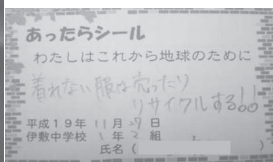 あったらシール
わたしはこれから地球のために
着れない服は売ったり
リサイクルする!!
平成19年 11月 29日
伊敷中学校 1年 2組
氏名( )